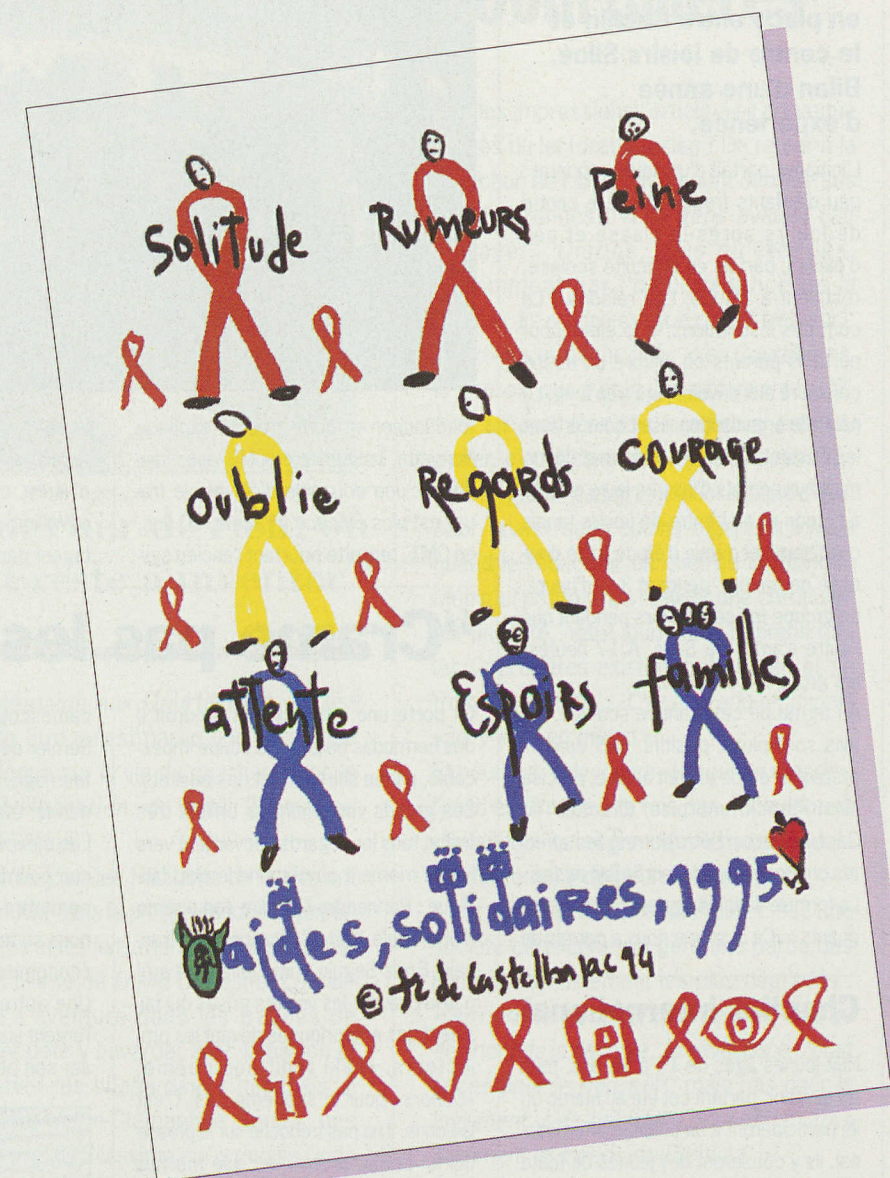 Solitude Rumeurs Peine
oublie Regards courage
attente Espoirs familles
aides, solidaires, 1995
© de Castelbajac 94